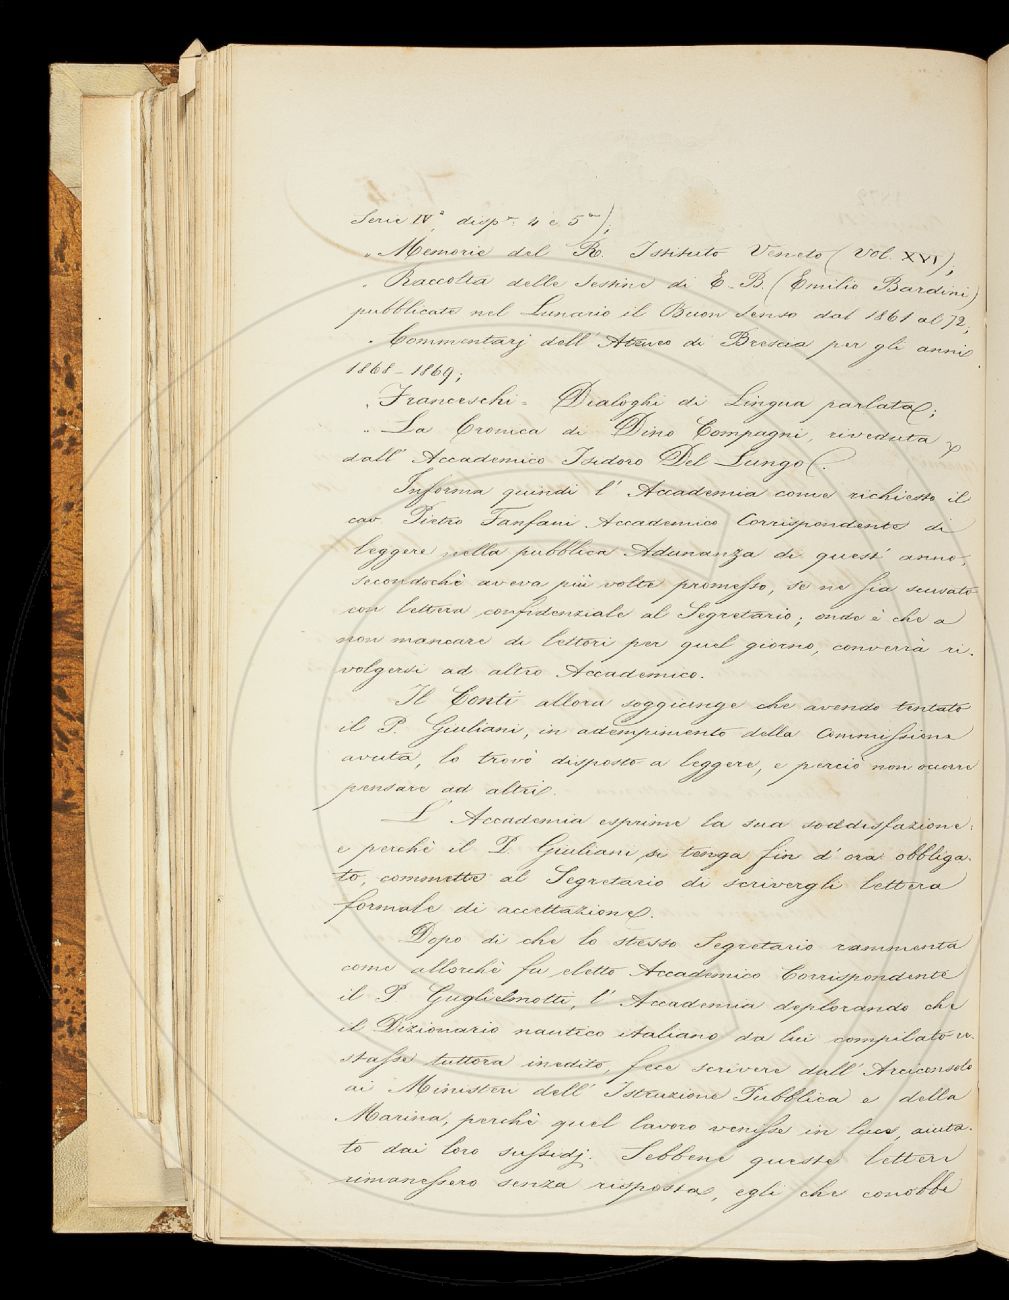 Serie IVª, dispª. 4 e 5ª);
„ Memorie del R. Istituto Veneto (Vol. XVI);
„ Raccolta delle Sestine di E. B. (Emilio Bardini)
pubblicate nel Lunario il Buon Senso dal 1861 al 72;
„ Commentarj dell' Ateneo di Brescia per gli anni
1868-1869;
„ Franceschi = Dialoghi di Lingua parlata;
„ La Cronica di Dino Compagni, riveduta
dall' Accademico Isidoro Del Lungo.
Informa quindi l' Accademia come richiesto il
cav. Pietro Fanfani Accademico Corrispondente di
leggere nella pubblica Adunanza di quest' anno,
secondochè aveva più volte promesso, se ne sia scusato
con lettera confidenziale al Segretario; onde è che a
non mancare di lettori per quel giorno, converrà ri-
volgersi ad altro Accademico.
Il Conti allora soggiunge che avendo tentato
il P. Giuliani, in adempimento della Commissione
avuta, lo trovò disposto a leggere, e perciò non occorre
pensare ad altri.
L' Accademia esprime la sua soddisfazione:
e perchè il P. Giuliani si tenga fin d' ora obbliga-
to, commette al Segretario di scrivergli lettera
formale di accettazione.
Dopo di che lo stesso Segretario rammenta
come allorchè fu eletto Accademico Corrispondente
il P. Guglielmotti, l' Accademia deplorando che
il Dizionario nautico italiano da lui compilato re-
stasse tuttora inedito, fece scrivere dall' Arciconsolo
ai Ministeri dell' Istruzione Pubblica e della
Marina, perchè quel lavoro venisse in luce, aiuta-
to dai loro sussidj. Sebbene queste lettere
rimanessero senza risposta, egli che conobbe